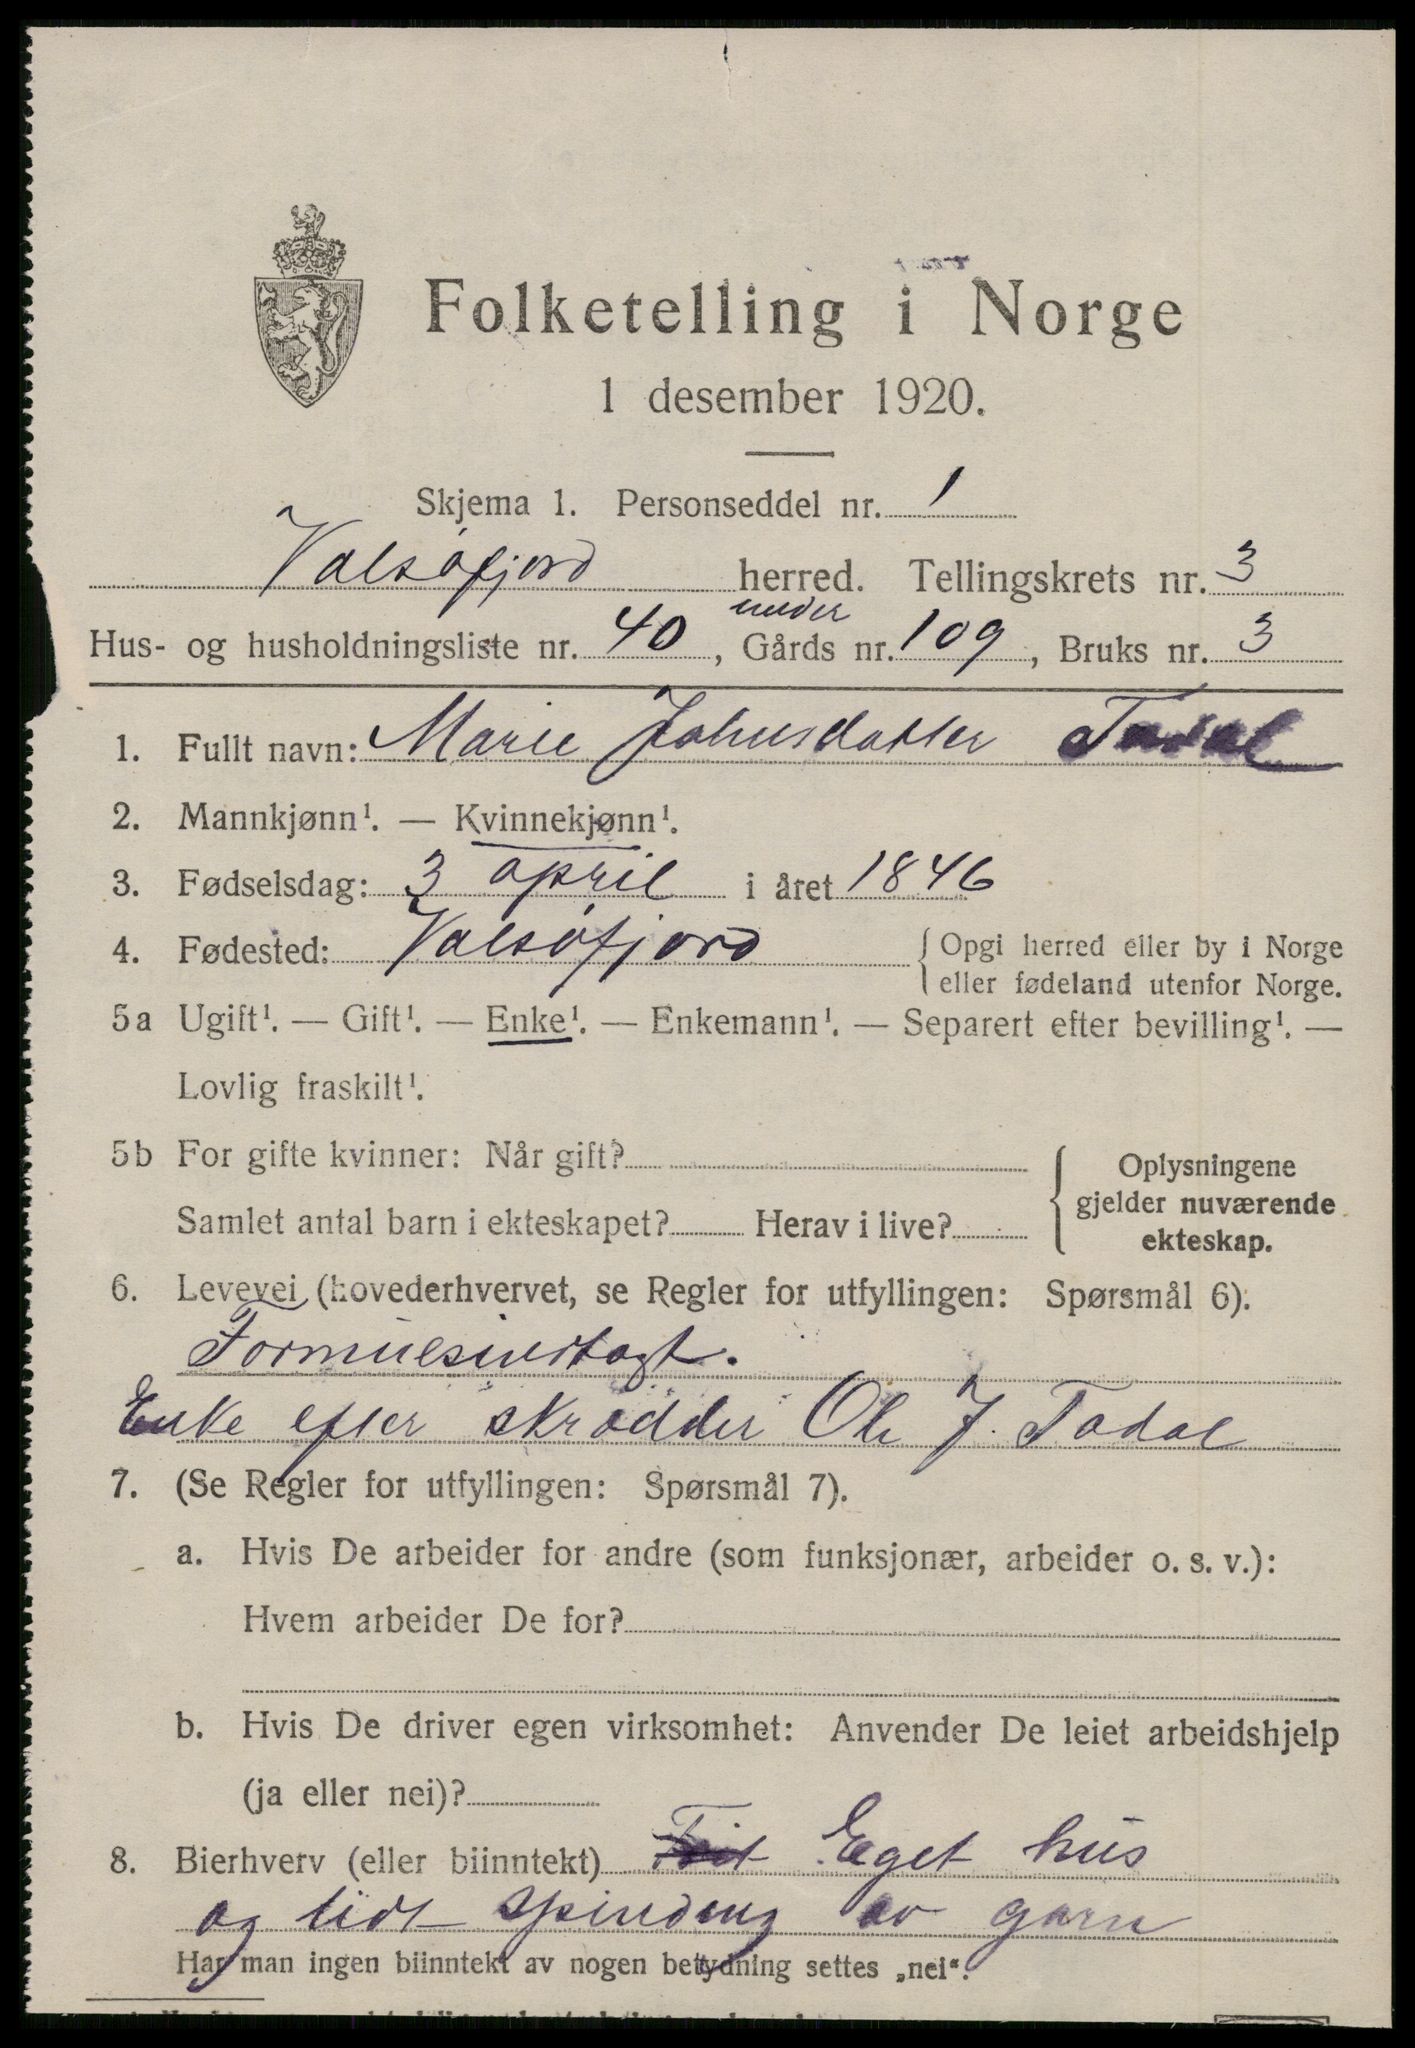 Folketelling i Norge
1 desember 1920.
Skjema 1. Personseddel nr. 1
Valsøfjord herred. Tellingskrets nr. 3
under
Hus- og husholdningsliste nr. 40, Gårds nr. 109, Bruks nr. 3
1. Fullt navn: Marie Johnsdatter Todal
2. Mannkjønn¹. — Kvinnekjønn¹.
3. Fødselsdag: 3 april i året 1846
4. Fødested: Valsøfjord { Opgi herred eller by i Norge
eller fødeland utenfor Norge.
5a Ugift¹. — Gift¹. — Enke¹. — Enkemann¹. — Separert efter bevilling¹. —
Lovlig fraskilt¹.
5b For gifte kvinner: Når gift?
Samlet antal barn i ekteskapet? Herav i live?
Oplysningene
gjelder nuværende
ekteskap.
6. Levevei (hovederhvervet, se Regler for utfyllingen: Spørsmål 6).
Formuesindtægt.
Enke efter skrædder Ole J. Todal
7. (Se Regler for utfyllingen: Spørsmål 7).
a. Hvis De arbeider for andre (som funksjonær, arbeider o. s. v.):
Hvem arbeider De for?
b. Hvis De driver egen virksomhet: Anvender De leiet arbeidshjelp
(ja eller nei)?
8. Bierhverv (eller biinntekt) Eget hus
og lidt spinding av garn
Har man ingen biinntekt av nogen betydning settes „nei“.